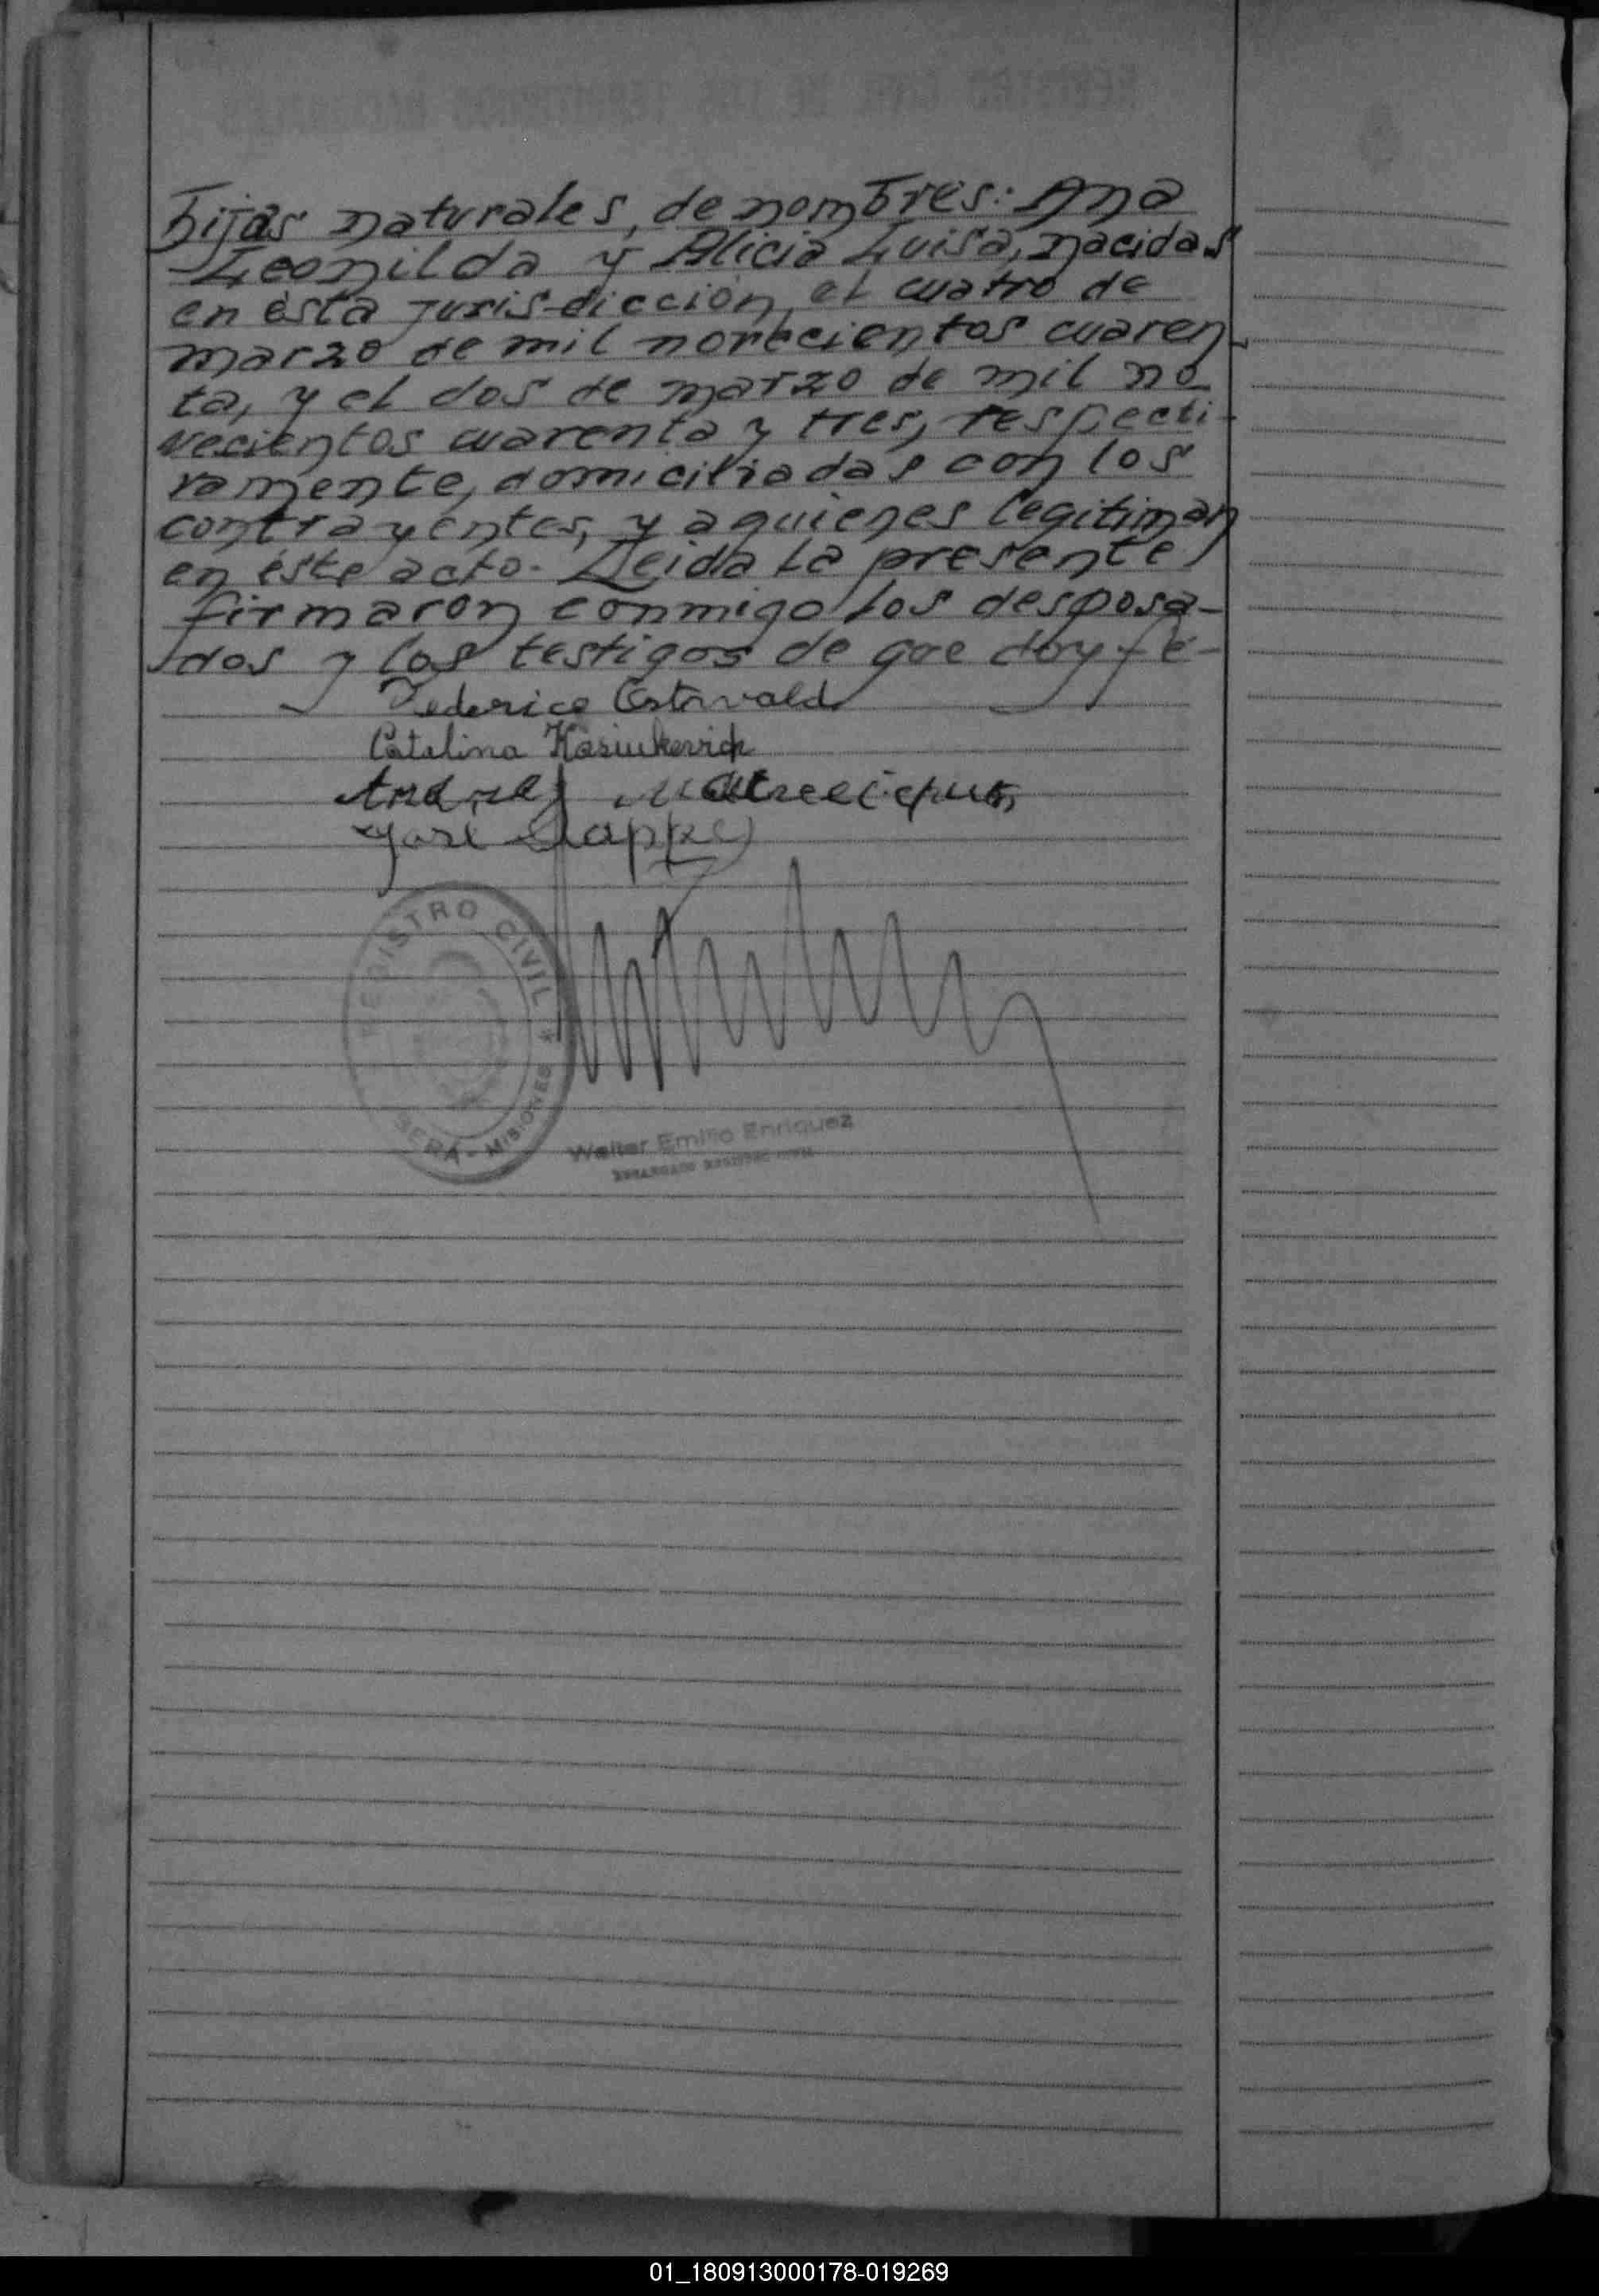 hijas naturales, de nombres: Ana
Leonilda y Alicia Luisa, nacidas
en ésta jurisdicción, el cuatro de
marzo de mil novecientos cuaren
ta, y el dos de marzo de mil no
vecientos cuarenta y tres, respecti-
vamente, domiciliadas con los
contrayentes, y a quienes legitiman
en éste acto. Leida la presente
firmaron conmigo los desposa-
dos y los testigos de que doy fé-
Federico Ostervald
Catalina Kasiukevich
José
REGISTRO CIVIL
MISIONES
Walter Emilio Enriquez
ENCARGADO REGISTRO CIVIL
01_180913000178-019269